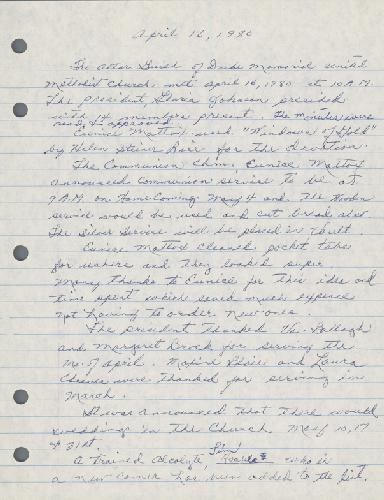 April 16, 1980
The Altar Guild of Dude Memorial United
Methodist Church met April 16, 1980 at 10 A.M.
The president, Gloria Johnson presided
with 14 members present. The minutes were
read & approved.
Eunice Mattox used "Windows of Gold"
by Helen Steiner Rice for the devotion.
The Communion Chm. Eunice Mattox
announced Communion service to be at
9 A.M. on Homecoming May 4 and the
service would be used and cut bread also.
The Silver Service will be placed in Vault.
Eunice Mattox cleaned pocket tabs
for ushers and they looked super.
Many thanks to Eunice for this idea and
time spent which saved much expense
not having to order new ones.
The president thanked Mrs.
and Margaret Brock for serving the
Mo. of April. and Laura
were thanked for serving in
March.
It was announced that there would
weddings in the Church May 10, 17
& 31st.
A trained Acolyte, "Jim" who is
a new comer has been added to the list.